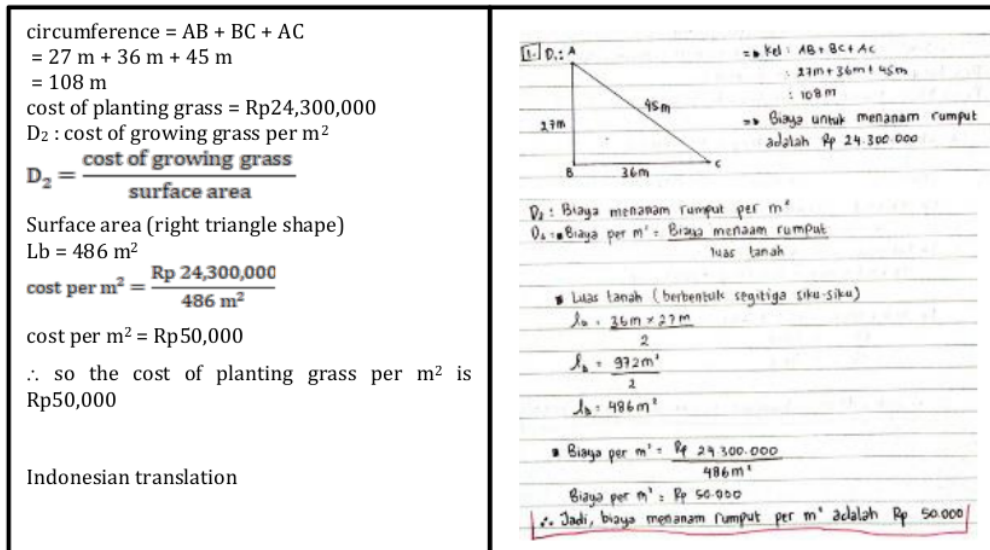 circumference = AB + BC + AC
= 27 m + 36 m + 45 m
= 108 m
cost of planting grass = Rp24,300,000
D₂ : cost of growing grass per m²
D₂ = cost of growing grass
surface area
Surface area (right triangle shape)
Lb = 486 m²
cost per m² = Rp 24,300,000
486 m²
cost per m² = Rp50,000
∴ so the cost of planting grass per m² is
Rp50,000
Indonesian translation
1. D₁: A
27m
45m
B
36m
C
=> Kel : AB + BC + AC
: 27m + 36m + 45m
: 108 m
=> Biaya untuk menanam rumput
adalah Rp 24.300.000
D₂ : Biaya menanam rumput per m²
Biaya per m² = Biaya menaam rumput
luas tanah
Luas tanah (berbentuk segitiga siku-siku)
36m × 27m
2
= 972m²
2
= 486m²
Biaya per m² = Rp 24.300.000
486m²
Biaya per m² = Rp 50.000
∴ Jadi, biaya menanam rumput per m² adalah Rp 50.000